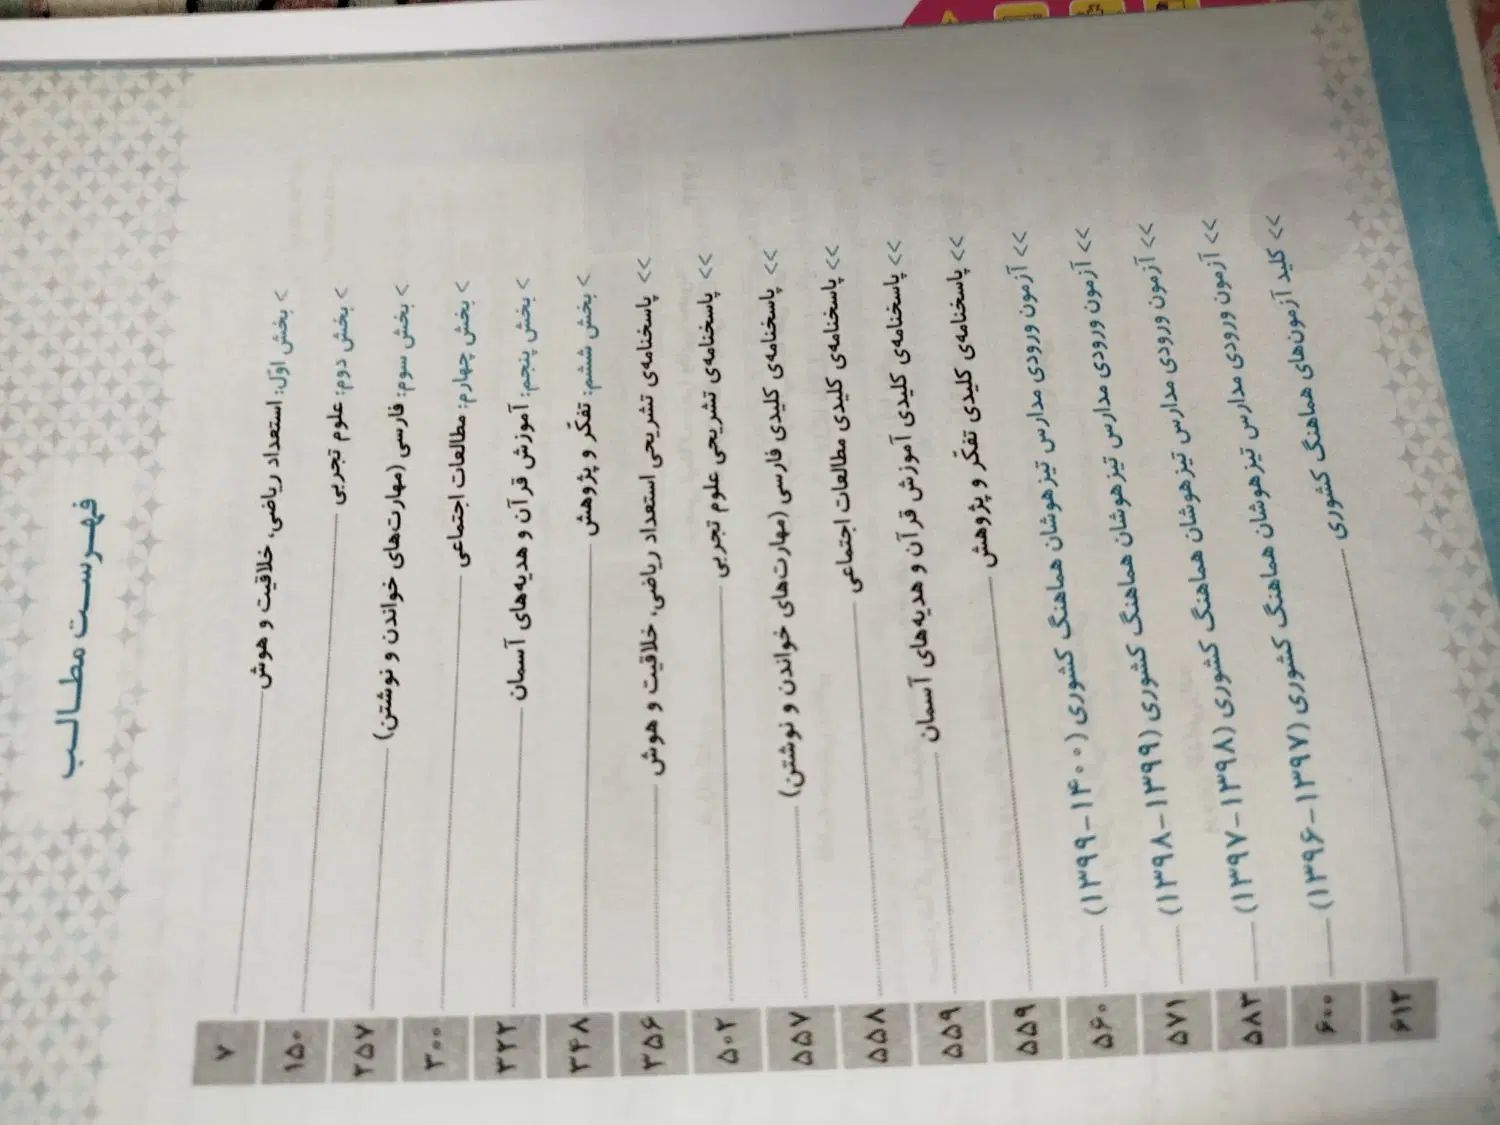 فهرست مطالب
> بخش اوّل: استعداد ریاضی، خلاقیت و هوش ۷
> بخش دوم: علوم تجربی ۱۵۰
> بخش سوم: فارسی (مهارت‌های خواندن و نوشتن) ۲۵۷
> بخش چهارم: مطالعات اجتماعی ۳۰۰
> بخش پنجم: آموزش قرآن و هدیه‌های آسمان ۳۲۲
> بخش ششم: تفکّر و پژوهش ۳۴۸
>> پاسخنامه‌ی تشریحی استعداد ریاضی، خلاقیت و هوش ۳۵۶
>> پاسخنامه‌ی تشریحی علوم تجربی ۵۰۲
>> پاسخنامه‌ی کلیدی فارسی (مهارت‌های خواندن و نوشتن) ۵۵۷
>> پاسخنامه‌ی کلیدی مطالعات اجتماعی ۵۵۸
>> پاسخنامه‌ی کلیدی آموزش قرآن و هدیه‌های آسمان ۵۵۹
>> پاسخنامه‌ی کلیدی تفکّر و پژوهش ۵۵۹
>> آزمون ورودی مدارس تیزهوشان هماهنگ کشوری (۱۴۰۰-۱۳۹۹) ۵۶۰
>> آزمون ورودی مدارس تیزهوشان هماهنگ کشوری (۱۳۹۹-۱۳۹۸) ۵۷۱
>> آزمون ورودی مدارس تیزهوشان هماهنگ کشوری (۱۳۹۸-۱۳۹۷) ۵۸۳
>> آزمون ورودی مدارس تیزهوشان هماهنگ کشوری (۱۳۹۷-۱۳۹۶) ۶۰۰
>> کلید آزمون‌های هماهنگ کشوری ۶۱۲